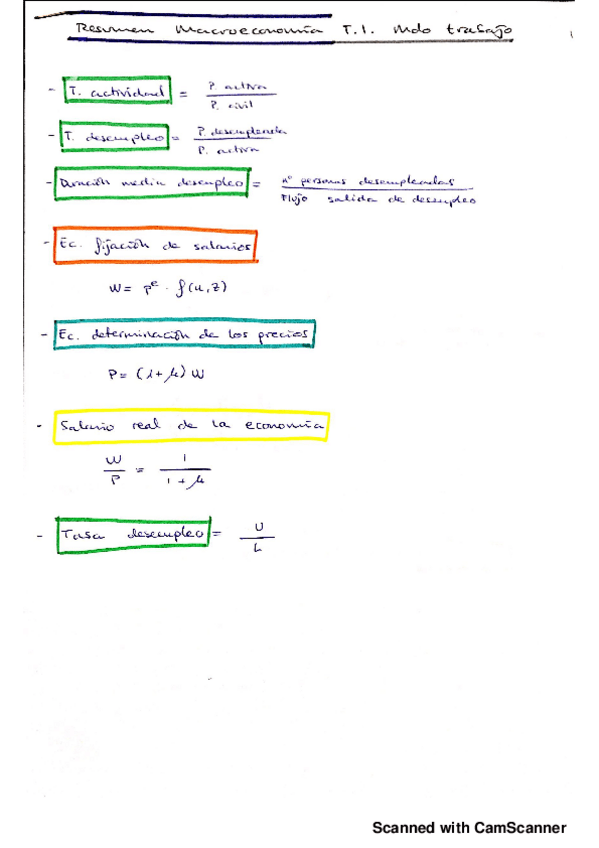 Resumen Macroeconomía T.1. Mdo trabajo
1
- T. actividad = P. activa / P. civil
- T. desempleo = P. desempleada / P. activa
- Duración media desempleo = nº personas desempleadas / Flujo salida de desempleo
- Ec. fijación de salarios
W = pᵉ · f(u,z)
- Ec. determinación de los precios
P = (1+μ) W
- Salario real de la economía
W/P = 1/(1+μ)
- Tasa desempleo = U/L
Scanned with CamScanner